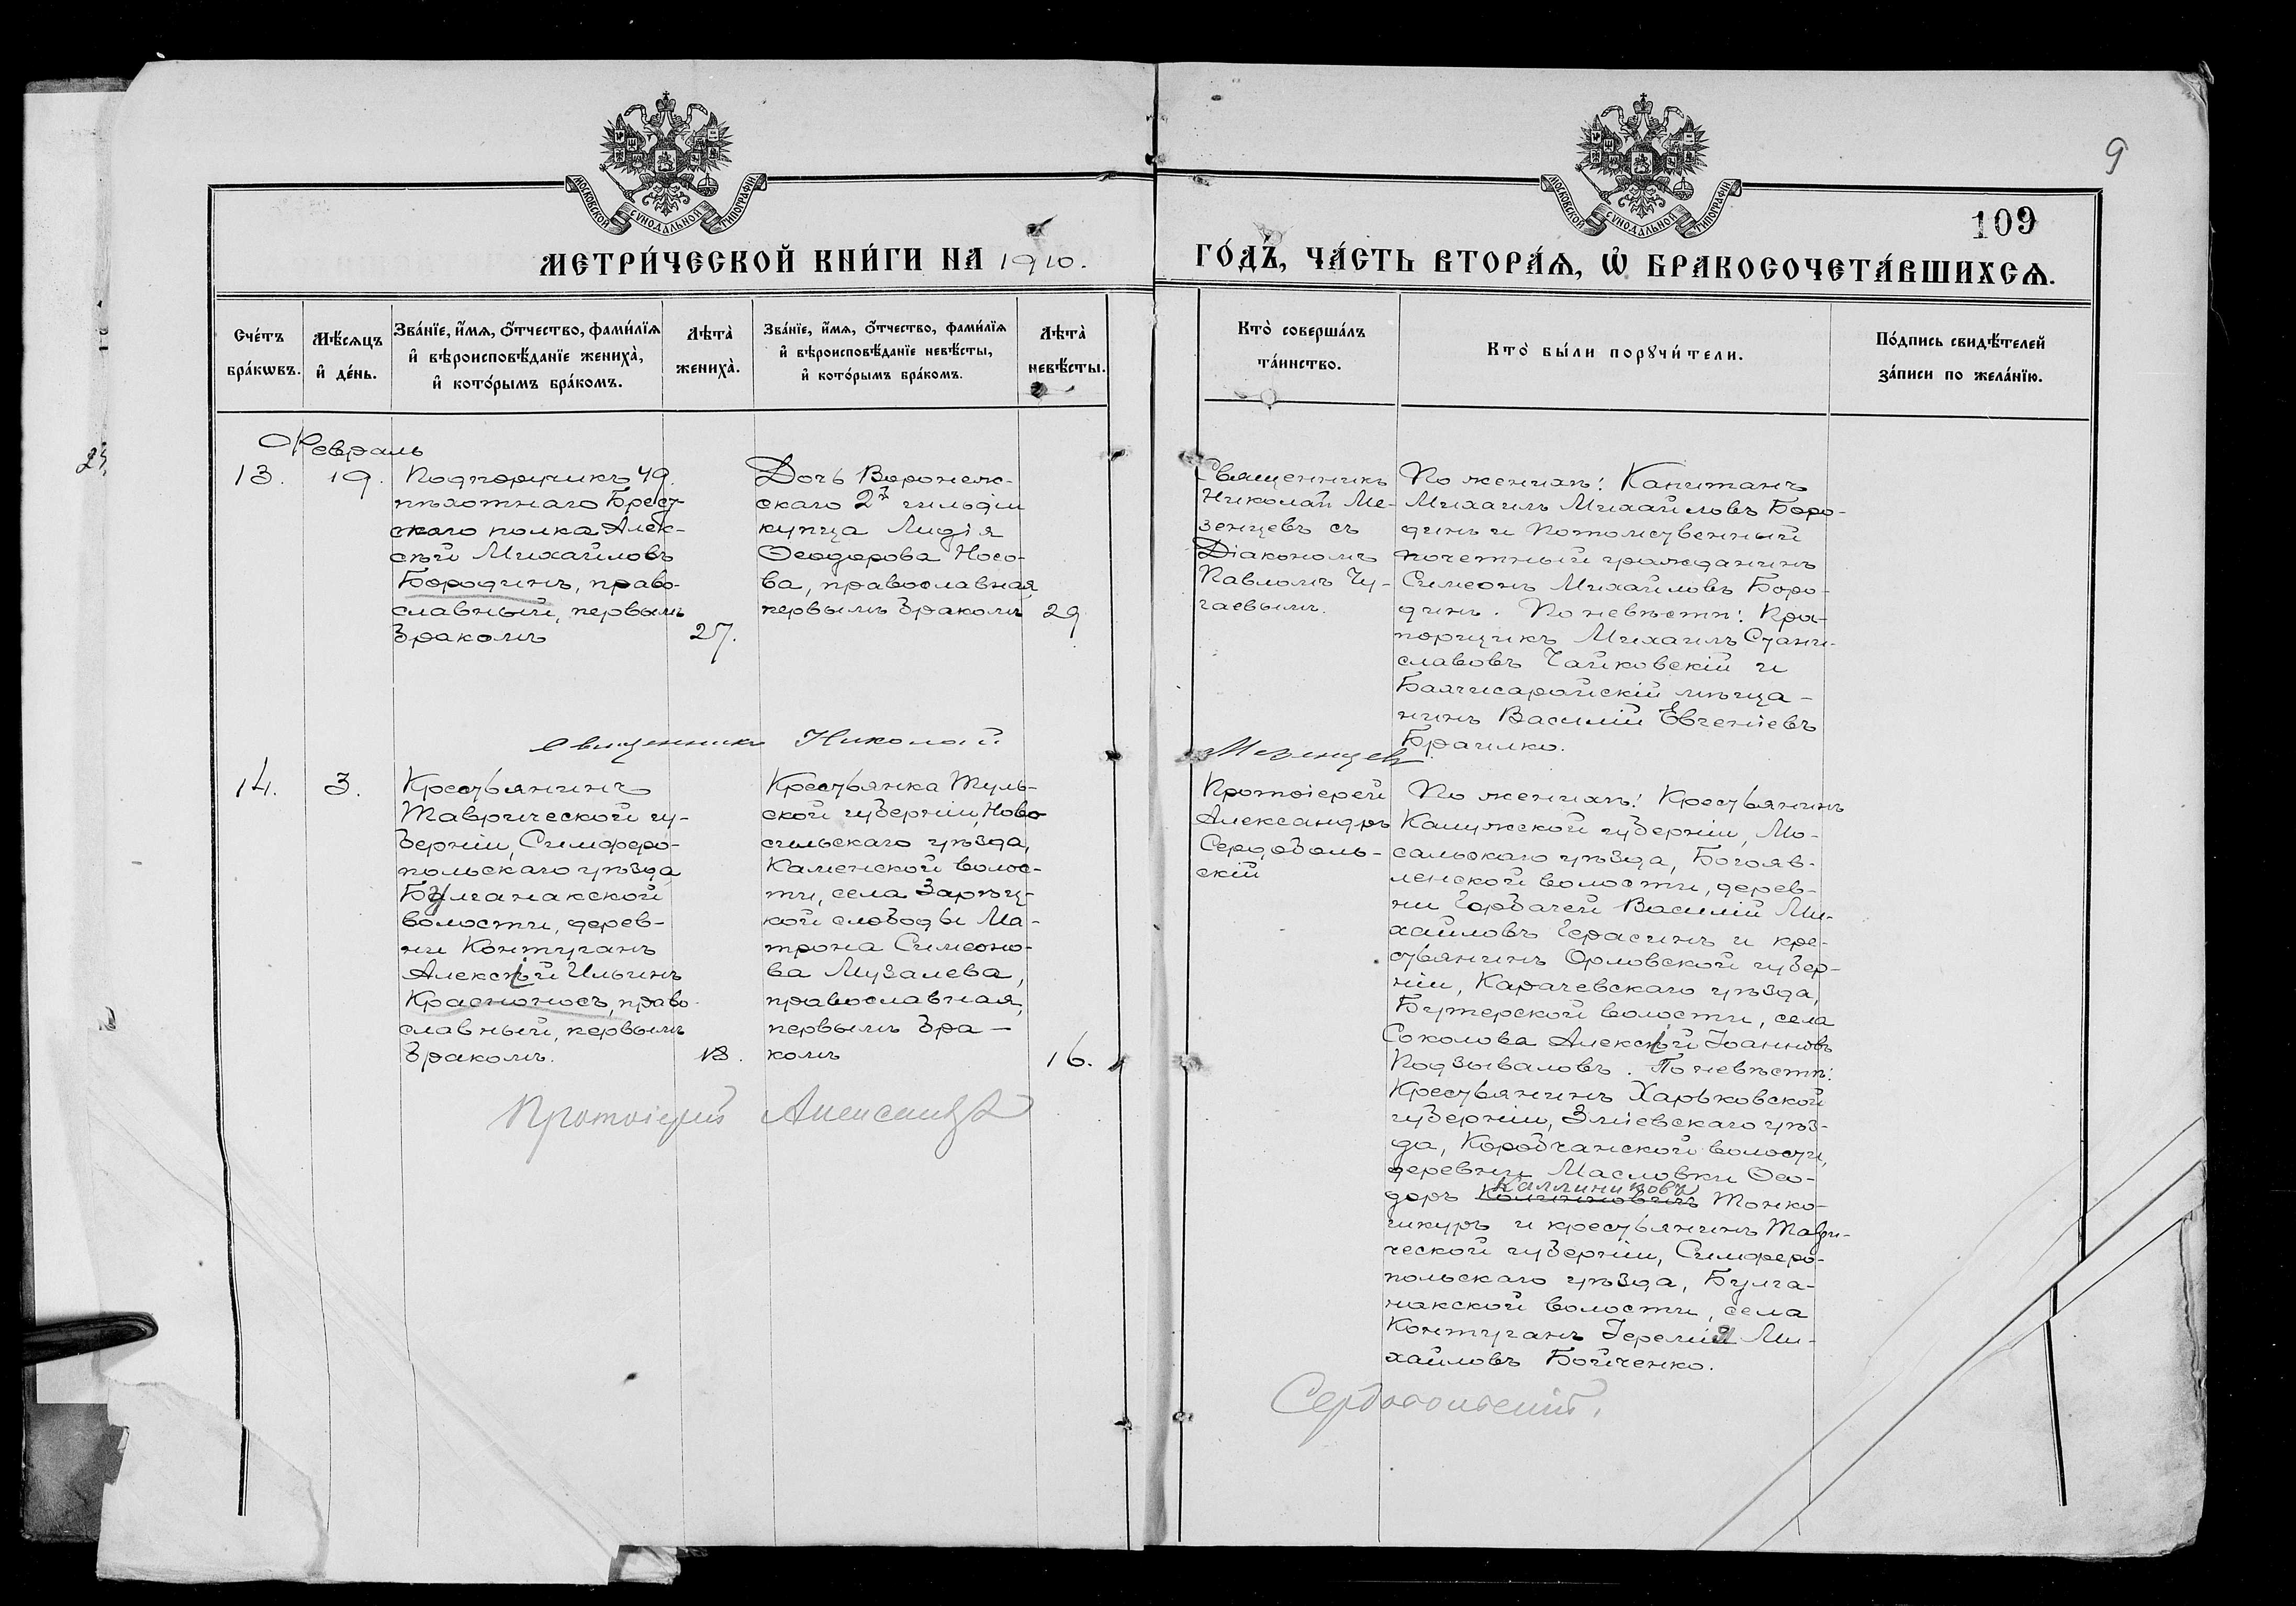 9
109
МОСКОВСКОЙ СѴНОДАЛЬНОЙ ТИПОГРАФІИ
МОСКОВСКОЙ СѴНОДАЛЬНОЙ ТИПОГРАФІИ
МЕТРИ́ЧЕСКОЙ КНИ́ГИ НА 1910.
ГО́ДЪ, ЧА́СТЬ ВТОРА́Я, Ѡ҆ БРАКОСОЧЕТА́ВШИХСЯ.
Сче́тъ
бра́кѡвъ.
Мѣ́сяцъ
и҆ де́нь.
Зва́нїе, и҆́мя, ѻ҆́тчество, фами́лїя
и҆ вѣроисповѣ́данїе жениха̀,
и҆ кото́рымъ бра́комъ.
Лѣта̀
жениха̀.
Зва́нїе, и҆́мя, ѻ҆́тчество, фами́лїя
и҆ вѣроисповѣ́данїе невѣ́сты,
и҆ кото́рымъ бра́комъ.
Лѣта̀
невѣ́сты.
Кто̀ соверша́лъ
та́инство.
Кто̀ бы́ли порꙋчи́тели.
По́дпись свидѣ́телей
за́писи по жела́нїю.
Февраль
13.
19.
Подпоручикъ 49.
пѣхотнаго Брест-
скаго полка Алек-
сѣй Михайловъ
Бородинъ, право-
славный, первымъ
бракомъ
27.
Дочь Воронеж-
скаго 2й гильдіи
купца Лидія
Ѳеодорова Носо-
ва, православная,
первымъ бракомъ
29
Священникъ
Николай Ме-
зенцевъ съ
Діакономъ
Павломъ Чу-
гаевымъ.
По женихѣ: Капитанъ
Михаилъ Михайловъ Боро-
динъ и Потомственный
почетный гражданинъ
Симеонъ Михайловъ Боро-
динъ. По невѣстѣ: Пра-
порщикъ Михаилъ Стани-
славовъ Чайковскій и
Бахчисарайскій мѣща-
нинъ Василій Евгеніевъ
Браилко.
Священникъ Николай Мезенцев
14.
3.
Крестьянинъ
Таврической гу-
берніи, Симферо-
польскаго уѣзда
Булганакской
волости, дерев-
ни Контуганъ
Алексѣй Ильинъ
Красноносъ, право-
славный, первымъ
бракомъ.
18.
Крестьянка Туль-
ской губерніи, Ново-
сильскаго уѣзда,
Каменской волос-
ти, села Зарѣц-
кой слободы Ма-
трона Симеоно-
ва Музалева,
православная,
первымъ бра-
комъ
16.
Протоіерей
Александръ
Сердоболь-
скій
По женихѣ: Крестьянинъ
Калужской губерніи, Мо-
сальскаго уѣзда, Богояв-
ленской волости, дерев-
ни Горбачей Василій Ми-
хайловъ Герасинъ и кре-
стьянинъ Орловской губер-
ніи, Карачевскаго уѣзда,
Бутерской волости, села
Соколова Алексѣй Іоанновъ
Подзываловъ. По невѣстѣ:
Крестьянинъ Харьковской
губерніи, Зміевскаго уѣз-
да, Коробчанской волости,
деревни Масловки Ѳео-
Каллиниковъ
доръ Тонко-
шкуръ и крестьянинъ Таври-
ческой губерніи, Симферо-
польскаго уѣзда, Булга-
накской волости, села
Контуганъ Іеремія Ми-
хайловъ Бойченко.
Протоіерей Александръ
Сердобольскій.